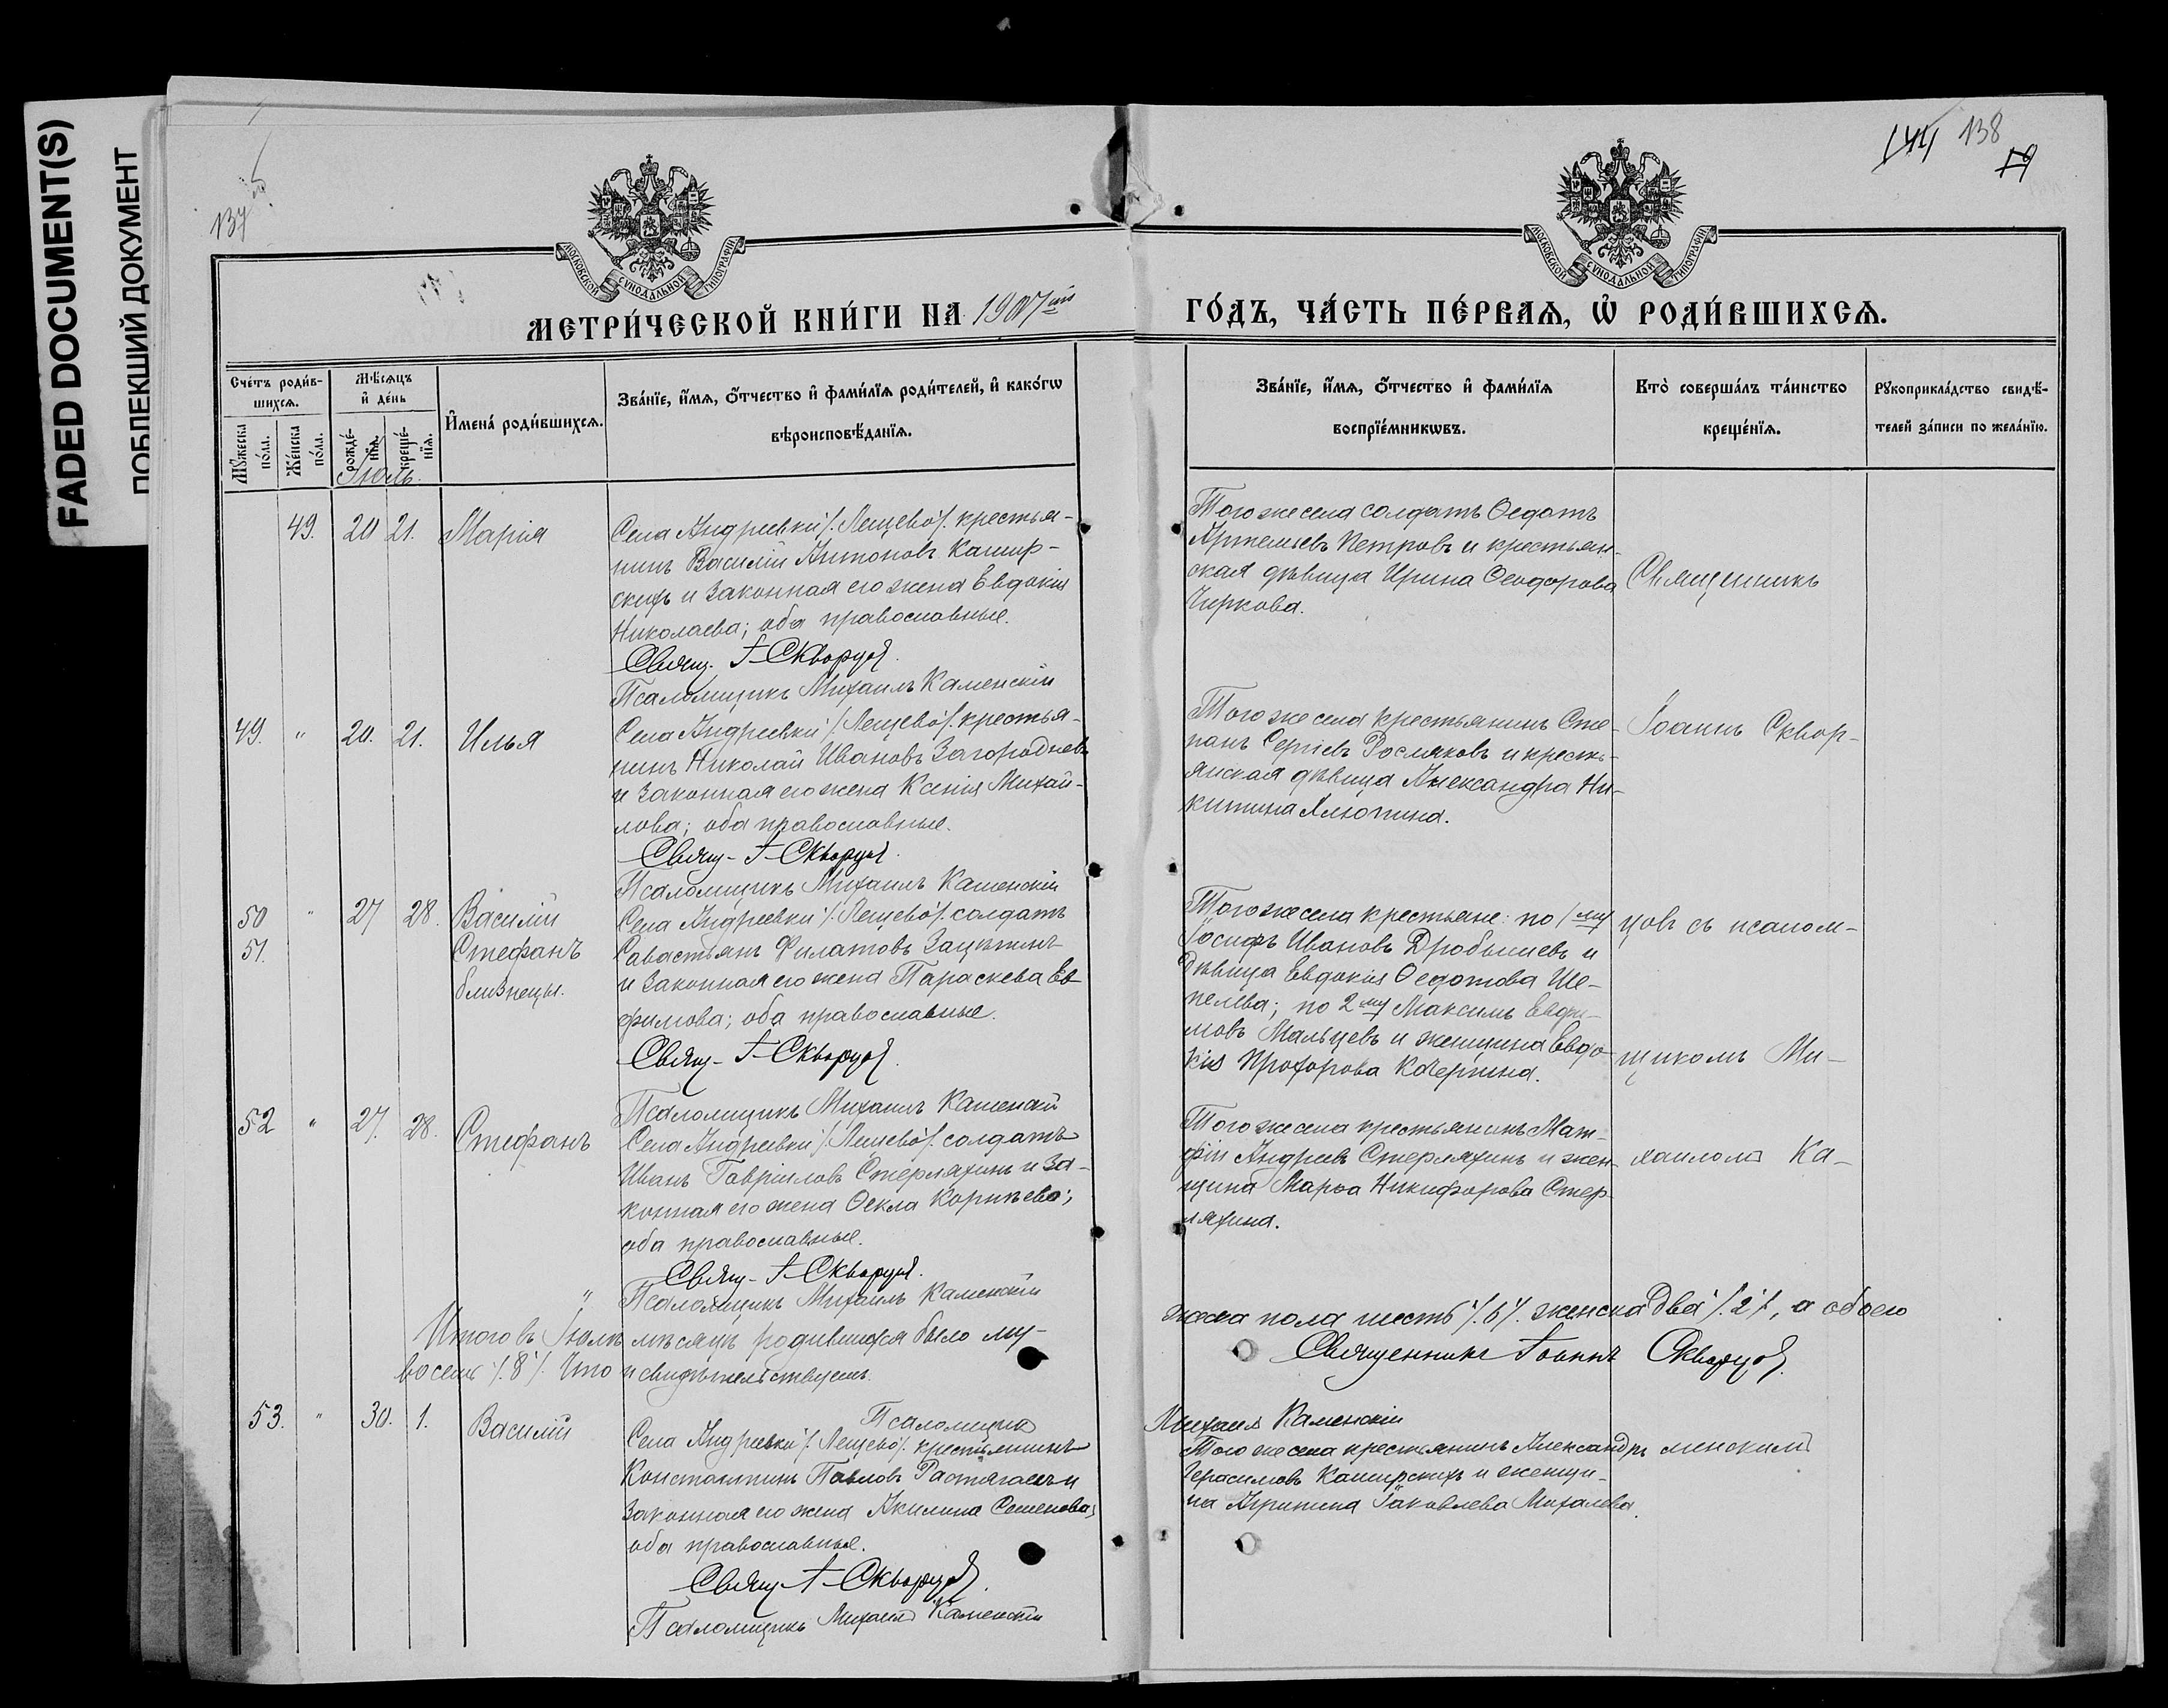 FADED DOCUMENT(S)
ПОБЛЕКШИЙ ДОКУМЕНТ
138
МОСКОВСКОЙ СѴНОДАЛЬНОЙ ТИПОГРАФІИ
МОСКОВСКОЙ СѴНОДАЛЬНОЙ ТИПОГРАФІИ
МЕТРИ́ЧЕСКОЙ КНИ́ГИ НА 1907й
ГО́ДЪ, ЧА́СТЬ ПЕ́РВАѦ, Ѡ҆ РОДИ́ВШИХСѦ.
Сче́тъ роди́в-
шихсѧ.
Мꙋ́жеска по́ла.
Же́нска по́ла.
Мѣ́сѧцъ
и҆ де́нь
рожде́-
нїѧ.
креще́-
нїѧ.
И҆мена̀ роди́вшихсѧ.
Зва́нїе, и҆́мѧ, ѻ҆́тчество и҆ фами́лїѧ роди́телей, и҆ како́гѡ
вѣроисповѣ́данїѧ.
Зва́нїе, и҆́мѧ, ѻ҆́тчество и҆ фами́лїѧ
воспрїе́мникѡвъ.
Кто̀ соверша́лъ та́инство
креще́нїѧ.
Рꙋкоприкла́дство свидѣ́-
телей за́писи по жела́нїю.
Іюль.
49. 20 21. Марія
Села Андреевки /. Лещево /. крестья-
нинъ Василій Антоновъ Кашир-
скихъ и законная его жена Евдокія
Николаева; оба православные.
Свящ. І. Скворцовъ.
Псаломщикъ Михаилъ Каменскій
Того же села солдатъ Ѳедотъ
Артемьевъ Петровъ и крестьян-
ская дѣвица Ирина Ѳеодорова
Чиркова.
Священникъ
49. " 20. 21. Илья
Села Андреевки /. Лещево /. крестья-
нинъ Николай Ивановъ Загородневъ
и законная его жена Ксенія Михай-
лова; оба православные.
Свящ. І. Скворцовъ.
Псаломщикъ Михаилъ Каменскій
Того же села крестьянинъ Сте-
панъ Сергіевъ Росляковъ и кресть-
янская дѣвица Александра Ни-
китина
Іоаннъ Сквор-
50 " 27 28. Василій
51. Стефанъ
близнецы.
Села Андреевки /. Лещево /. солдатъ
Савастьянъ Филатовъ Зацѣпинъ
и законная его жена Параскева Ев-
фимова; оба православные.
Свящ. І. Скворцовъ.
Псаломщикъ Михаилъ Каменскій
Того же села крестьяне: по 1му
Іосифъ Ивановъ Дробышевъ и
дѣвица Евдокія Ѳедотова Ше-
пелева; по 2му Максимъ Евфи-
мовъ Мальцевъ и женщина Евдо-
кія Прохорова
цовъ съ псалом-
щикомъ Ми-
52 " 27. 28. Стефанъ
Села Андреевки /. Лещево /. солдатъ
Иванъ Гавріиловъ Стерляхинъ и за-
конная его жена Ѳекла Корнѣева;
оба православные.
Свящ. І. Скворцовъ.
Псаломщикъ Михаилъ Каменскій
Того же села крестьянинъ Мат-
фій Андреевъ Стерляхинъ и жен-
щина Марѳа Никифорова Стер-
ляхина.
хаиломъ Ка-
Итого въ Іюлѣ мѣсяцѣ родившихся было му-
жеска пола шесть /. 6 /. женска два /. 2 /., а обоего
восемь /. 8 /. Что и свидѣтельствуемъ.
Священникъ Іоаннъ Скворцовъ.
Псаломщикъ
Михаилъ Каменскій
53. " 30. 1. Василій
Села Андреевки /. Лещево /. крестьянинъ
Константинъ Павловъ Растягаевъ и
законная его жена Акилина Семенова;
оба православные.
Свящ. І. Скворцовъ.
Псаломщикъ Михаилъ Каменскій
Того же села крестьянинъ Александръ
Герасимовъ Каширскихъ и женщи-
на Агрипина Іаковлева Михалева.
менскимъ